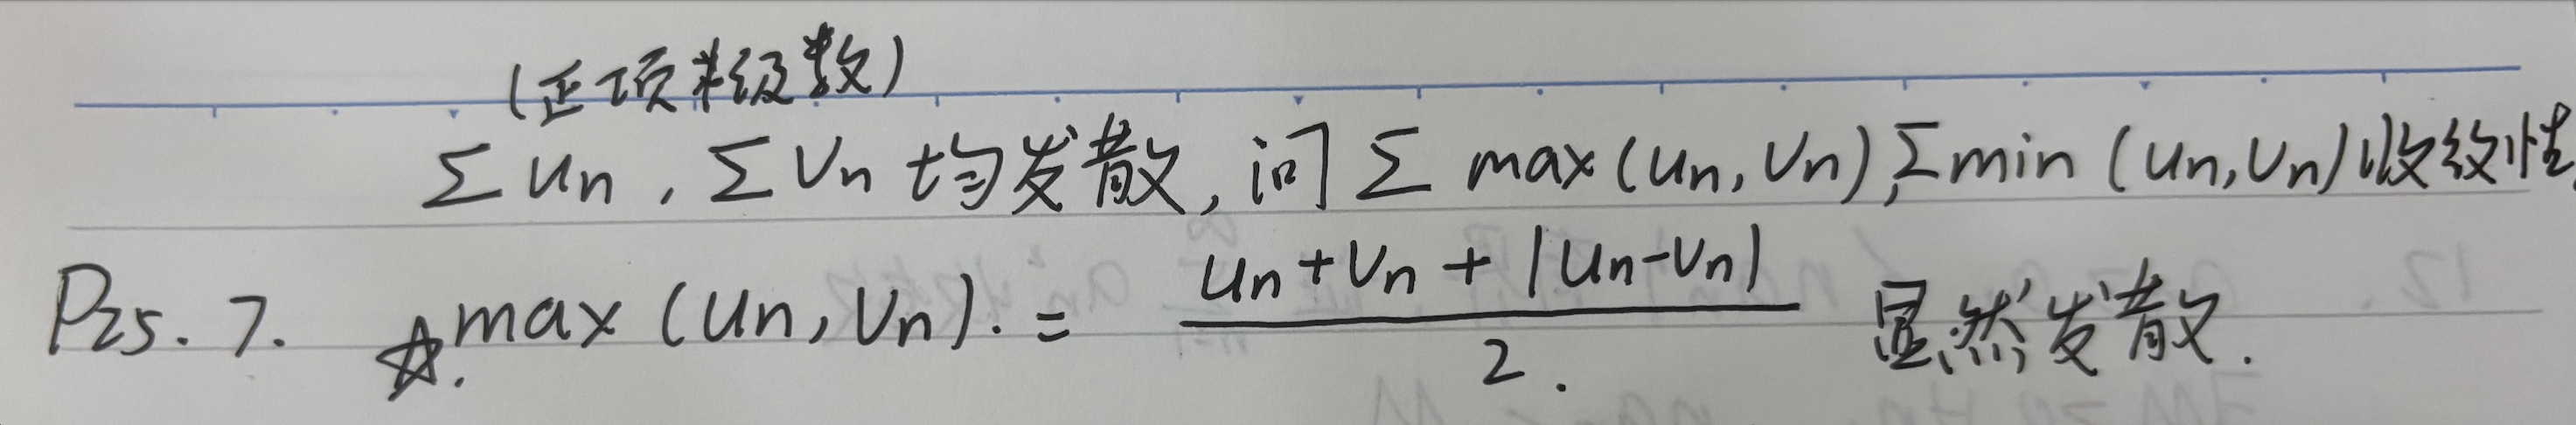 (正项级数)
∑ un, ∑ vn 均发散, 问 ∑ max(un, vn), ∑ min(un, vn)收敛性
P25. 7. ☆. max(un, vn). = (un+vn+|un-vn|)/2. 显然发散.